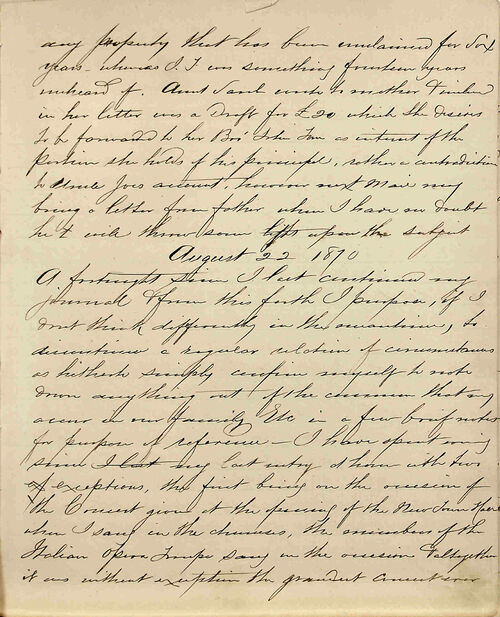 any property that has been unclaimed for Six
years - whereas J. T was something fourteen years
unheard of. Aunt Sarah wrote to mother & enclosed
in her letter was a Draft for £20 which she desires
to be forwarded to her Bro' John as interest of the
portion she holds of his principal, rather a contradiction
to Uncle Joes account, however next Mail may
bring a letter from father when I have no doubt
he will throw some light upon the subject
August 22 1870
A fortnight since I last continued my
Journal & from this forth I purpose, if I
dont think differently in the meantime, to
discontinue a regular relation of circumstances
as hitherto simply confine myself to note
down anything out of the common that may
occur in our family Etc in a few brief notes
for purpose of reference - I have spent every
since my last entry at home with two
exceptions, the first being on the occasion of
the Concert given at the opening of the New Town Hall
when I sang in the chorusses, the members of the
Italian Opera Troupe sang on the occasion & altogether
it was without exception the grandest concert ever